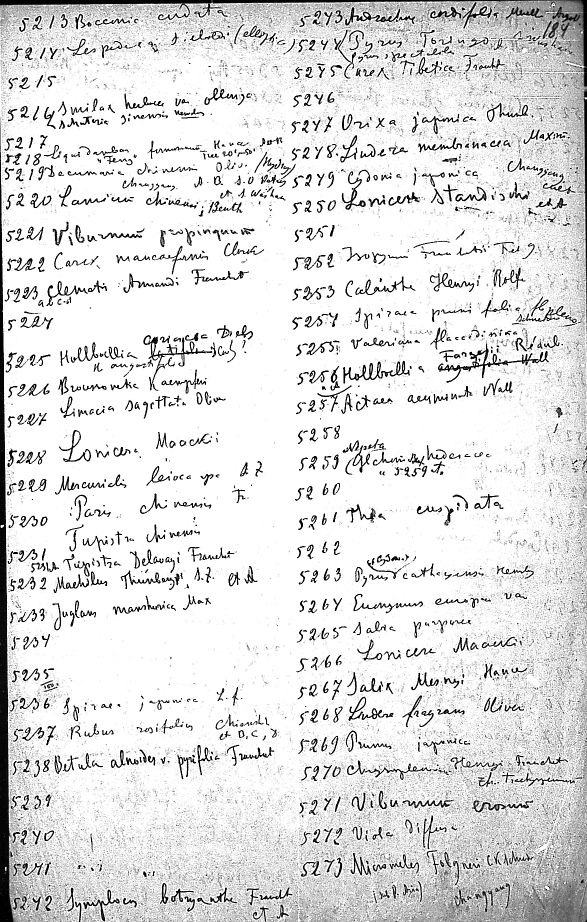 5213 Bocconia cordata
5214 Lespedeza
5215
5216 Smilax herbacea va
sinensis
5217
5218 Liquidambar formosana Hance
5219 Decumaria sinensis Oliv
Changyang A. B.
5220 Lamium chinense, Benth
5221 Viburnum propinquum
5222 Carex
5223 Clematis Armandi Franchet
a, b, c, d
5224
coriacea Diels
5225 Hollboellia
H. angustifolia
5226 Broussonetia Kaempferi
5227 Limacia sagittata Oliv
5228 Lonicera Maackii
5229 Mercurialis leiocarpa S. Z.
5230 Paris chinensis Fr.
Tupistra chinensis
5231
Tupistra Delavayi Franchet
5232 Machilus Thunbergii S. Z. et A
5233 Juglans manshurica Max
5234
5235
5236 Spiraea japonica L. f.
5237 Rubus rosifolius
et B, C, D
5238 Betula alnoides v. pyrifolia Franchet
5239
5240
5241 " "
5242 Symplocos botryantha Franchet
et A
184
5243 Andrachne cordifolia Muell
5244 Pyrus Toringo
Pyrus spectabilis
5245 Carex Tibetica Franchet
5246
5247 Orixa japonica Thunb
5248 Lindera membranacea Maxim
5249 Cydonia japonica Changyang
5250 Lonicera Standishi
et A
5251
5252
5253 Calanthe Henryi Rolfe
5254 Spiraea prunifolia fl. pleno
5255 Valeriana flaccidissima
Fargesii Réaub.
5256 Hollboellia angustifolia Wall
5257 Actaea acuminata Wall
5258
Nepeta
5259 Glechoma hederacea
" 5259 A.
5260
5261 Thea cuspidata
5262
5263 Pyrus cathayensis Hemsl
5264 Euonymus europaea va
5265 Sabia purpurea
5266 Lonicera Maackii
5267 Salix Mesnyi Hance
5268 Lindera fragrans Oliver
5269 Prunus japonica
5270 Chrysosplenium Henryi Franchet
5271 Viburnum erosum
5272 Viola diffusa
5273 Micromeles Folgneri C K Schneid
Changyang